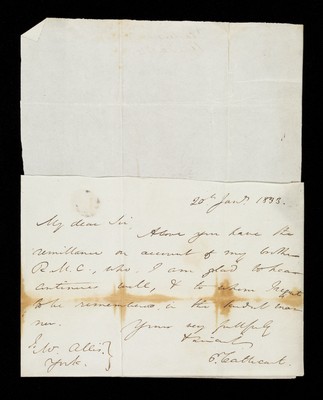 20th Jany. 1838.
My dear Sir,
Above you have the
remittance on account of my brother
R. M. C., who I am glad to hear
continues well, & to whom I beg
to be remembered in the kindest man
ner.
Yours very faithfully
& sincerely
Cathcart.
W. Allis
York.